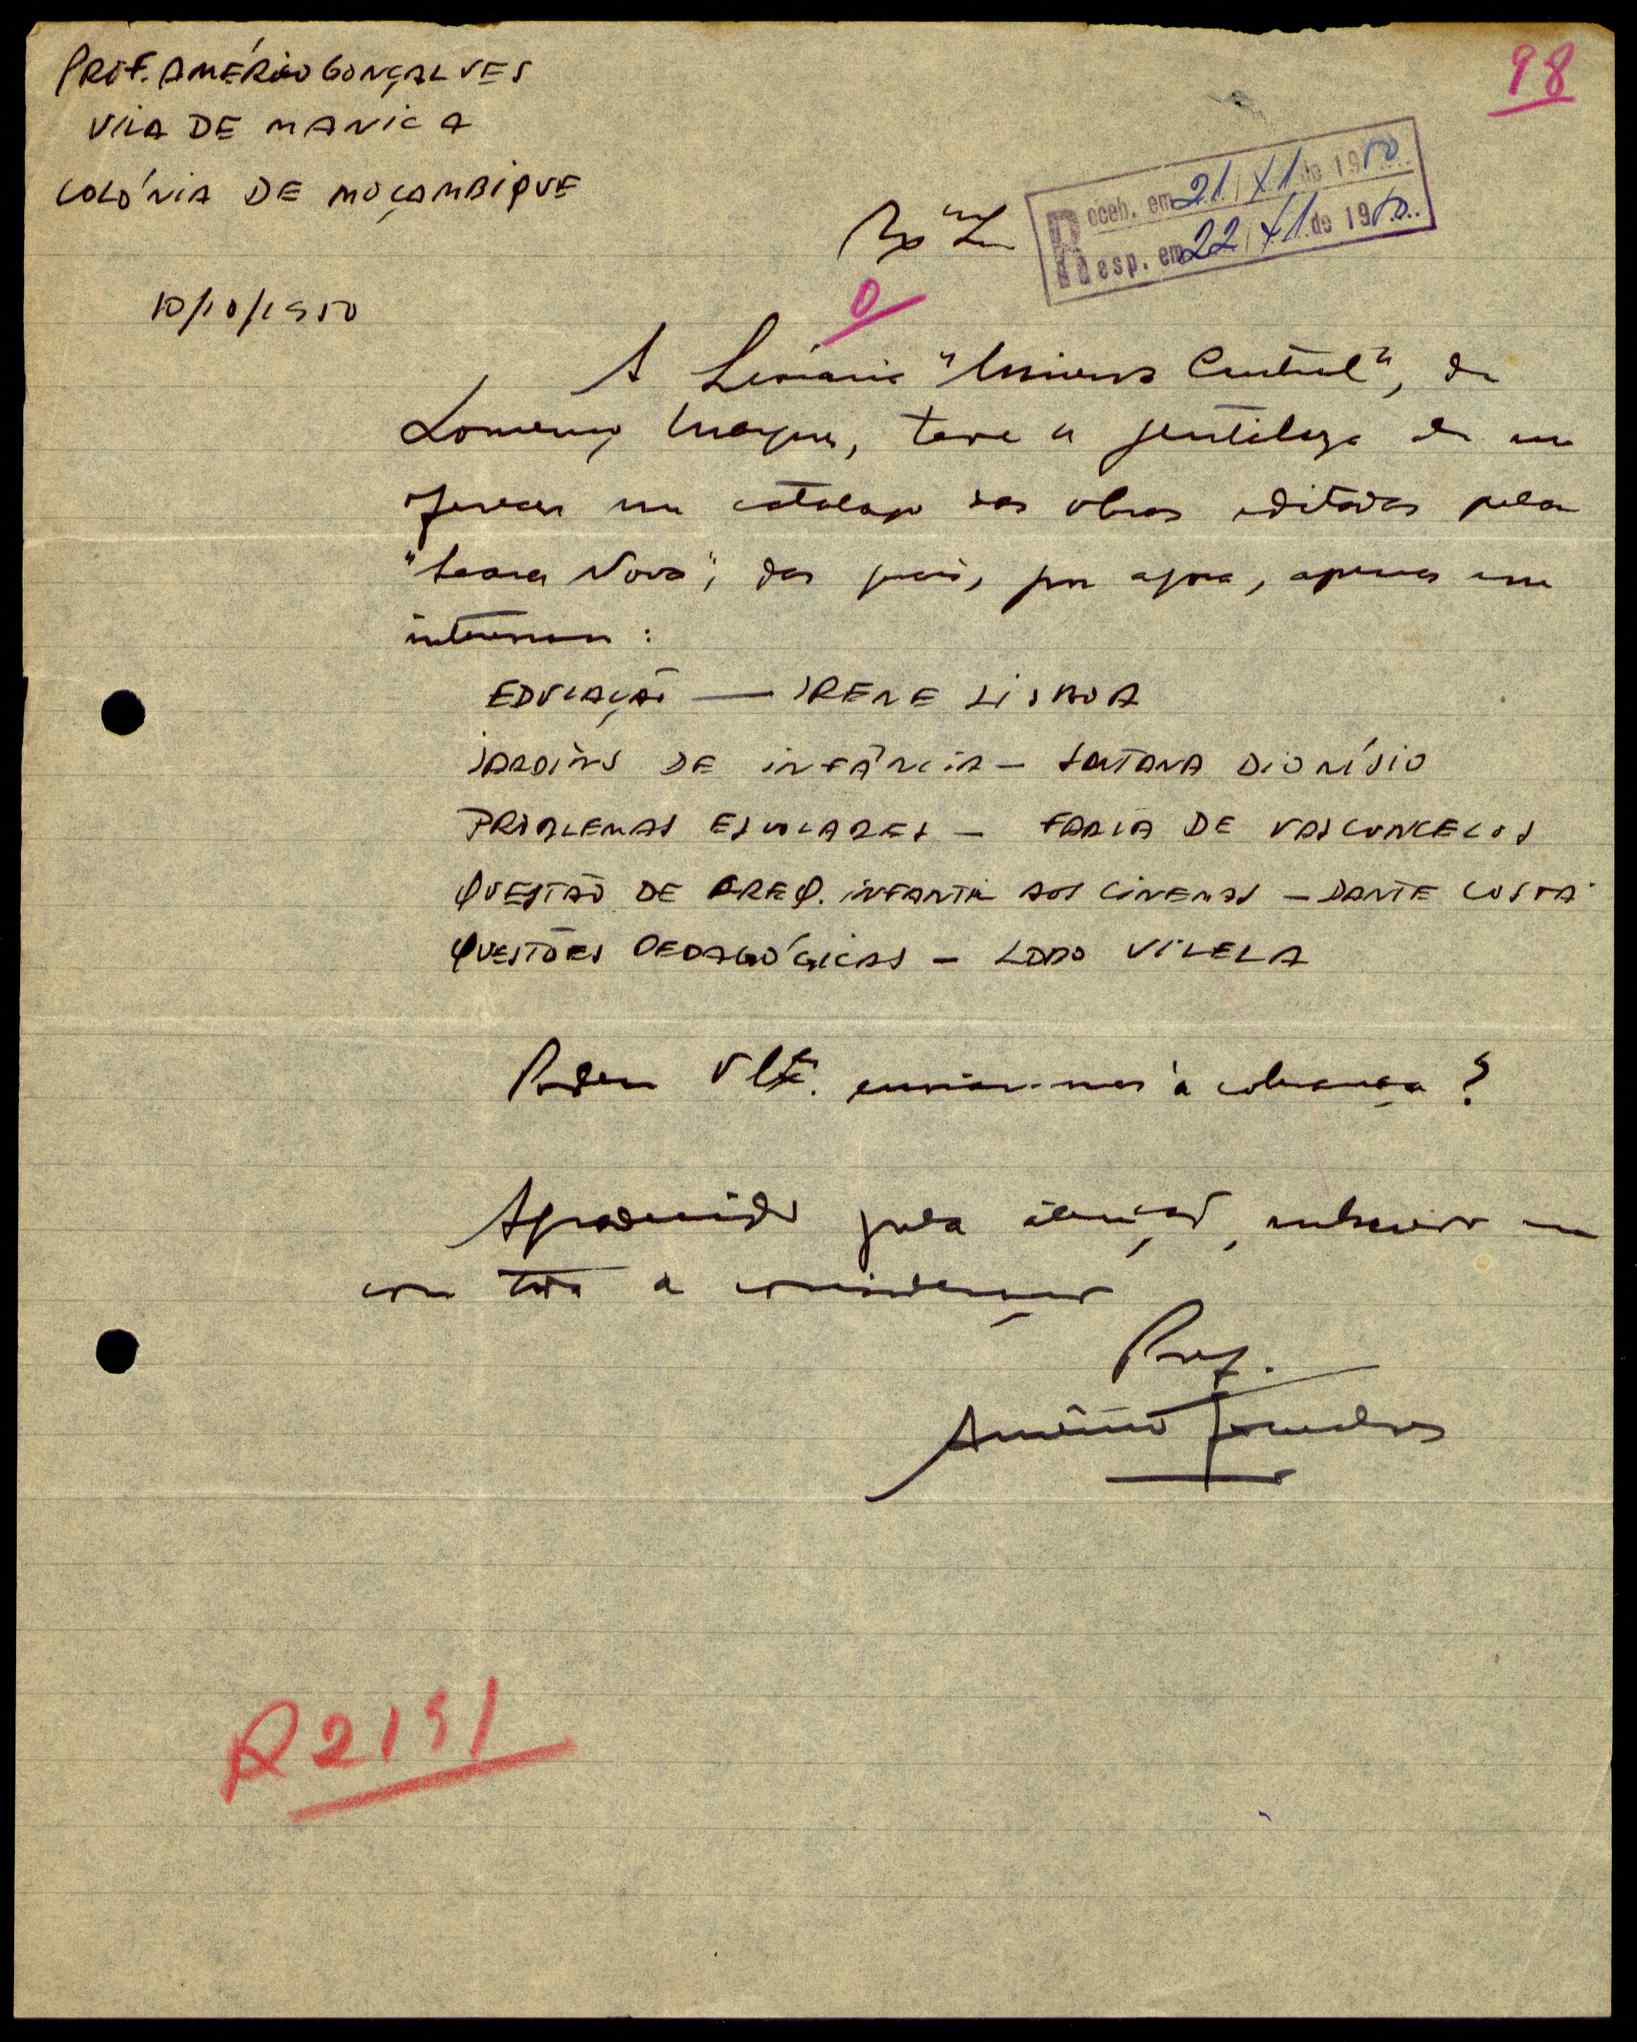 PROF. AMÉRICO GONÇALVES
98
VILA DE MANICA
COLÓNIA DE MOÇAMBIQUE
Receb. em 21/XI de 1950
Resp. em 22/XI de 1950
10/10/1950
A Livraria "Minerva Central", de
Lourenço Marques, teve a gentileza de me
oferecer um catálogo das obras editadas pela
"Seara Nova", das quais, por agora, apenas me
interessam:
EDUCAÇÃO — IRENE LISBOA
JARDINS DE INFÂNCIA — SANTANA DIONÍSIO
PROBLEMAS ESCOLARES — FARIA DE VASCONCELOS
QUESTÃO DE FREQ. INFANTIL AOS CINEMAS — DANTE COSTA
QUESTÕES PEDAGÓGICAS — LOBO VILELA
Podem enviar-mas à cobrança?
Agradecido pela atenção, subscrevo-me
com toda a consideração
Prof.
Américo Gonçalves
R2191